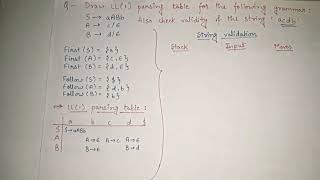 Q- Draw LL(1) parsing table for the following grammar:
S → aABb
A → c/ε
B → d/ε
Also check validity of the string: acdb
First (S) = {a}
First (A) = {c, ε}
First (B) = {d, ε}
Follow (S) = {$}
Follow (A) = {d, b}
Follow (B) = {b}
→ LL(1) parsing table:
a b c d $
S S→aABb
A A→ε A→c A→ε
B B→ε B→d
String validation
Stack Input Moves